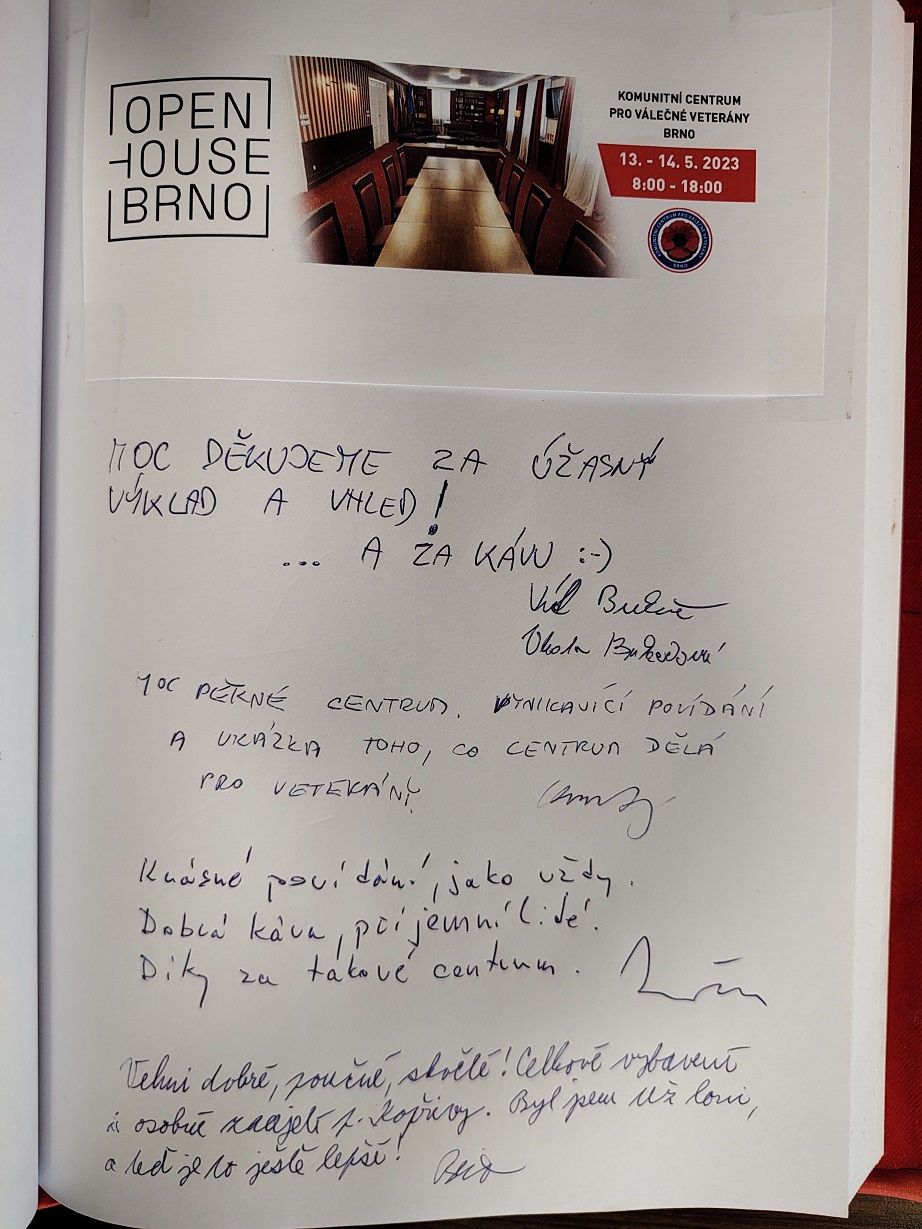 OPEN
HOUSE
BRNO
KOMUNITNÍ CENTRUM
PRO VÁLEČNÉ VETERÁNY
BRNO
13. - 14. 5. 2023
8:00 - 18:00
KOMUNITNÍ CENTRUM PRO VÁLEČNÉ VETERÁNY
BRNO
MOC DĚKUJEME ZA ÚŽASNÝ
VÝKLAD A VHLED!
... A ZA KÁVU :-)
MOC PĚKNÉ CENTRUM. VYNIKAJÍCÍ POVÍDÁNÍ
A UKÁZKA TOHO, CO CENTRUM DĚLÁ
PRO VETERÁNY.
Krásné povídání, jako vždy.
Dobrá káva, příjemní lidé.
Díky za takové centrum.
Velmi dobré, poučné, skvělé! Celkové vybavení
i osobné p. Kopřivy. Byl jsem už loni,
a teď je to ještě lepší!